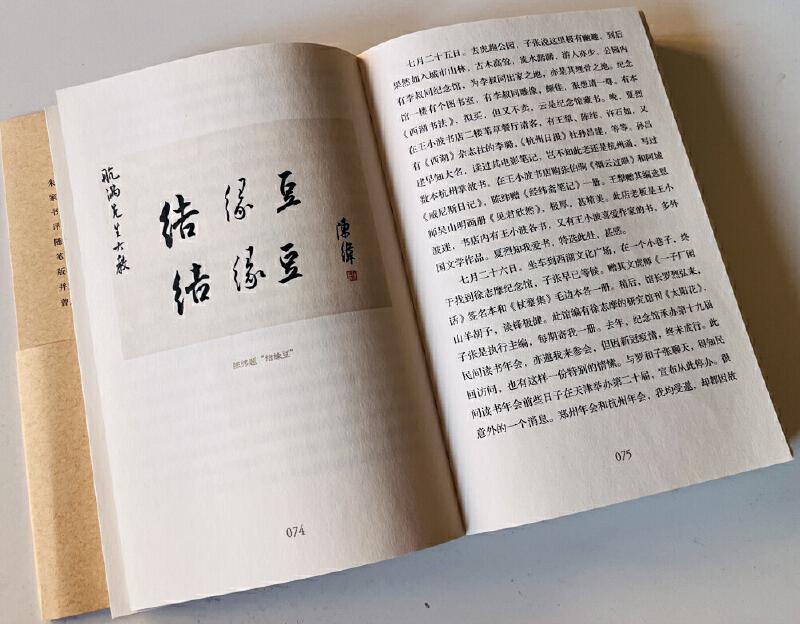 朱
家
书
评
随
笔
版
并
曾
航满先生大教
结缘豆
结缘豆
陈纬
陈纬题“结缘豆”
074
七月二十五日。去虎跑公园，子张说这里极有幽趣，到后
果然如入城市山林，古木高耸，流水潺潺，游人亦少。公园内
有李叔同纪念馆，为李叔同出家之地，亦是其埋骨之地。纪念
馆一楼有个图书室，有李叔同雕像，颇佳，很想请一尊。有本
《西湖书法》，拟买，但又不卖，云是纪念馆藏书。晚，夏烈
在王小波书店二楼苇草餐厅请客，有王犁、陈纬、许石如，又
有《西湖》杂志社的李璐，《杭州日报》社孙昌建，等等。孙昌
建早知大名，读过其电影笔记，岂不知此老还是杭州通，写过
数本杭州掌故书。在王小波书店购张伯驹《烟云过眼》和阿城
《威尼斯日记》，陈纬赠《经纬斋笔记》一册。王犁赠其编选恩
师吴山明画册《见君欣然》，极厚，甚精美。此店老板是王小
波迷，书店内有王小波各书，又有王小波喜爱作家的书，多外
国文学作品。夏烈知我爱书，特选此处，甚感。
七月二十六日。坐车到西湖文化广场，在一个小巷子，终
于找到徐志摩纪念馆，子张早已等候，赠其文虎师《一子厂闲
话》签名本和《杖藜集》毛边本各一册。稍后，馆长罗烈弘来，
山羊胡子，谈锋极健。此馆编有徐志摩的研究馆刊《太阳花》，
子张是执行主编，每期寄我一册。去年，纪念馆承办第十九届
民间读书年会，亦邀我来参会，但因新冠疫情，终未成行。此
回访问，也有这样一份特别的情愫。与罗和子张聊天，得知民
间读书年会前些日子在天津举办第二十届，宣布从此停办。很
意外的一个消息。郑州年会和杭州年会，我均受邀，却都因故
075